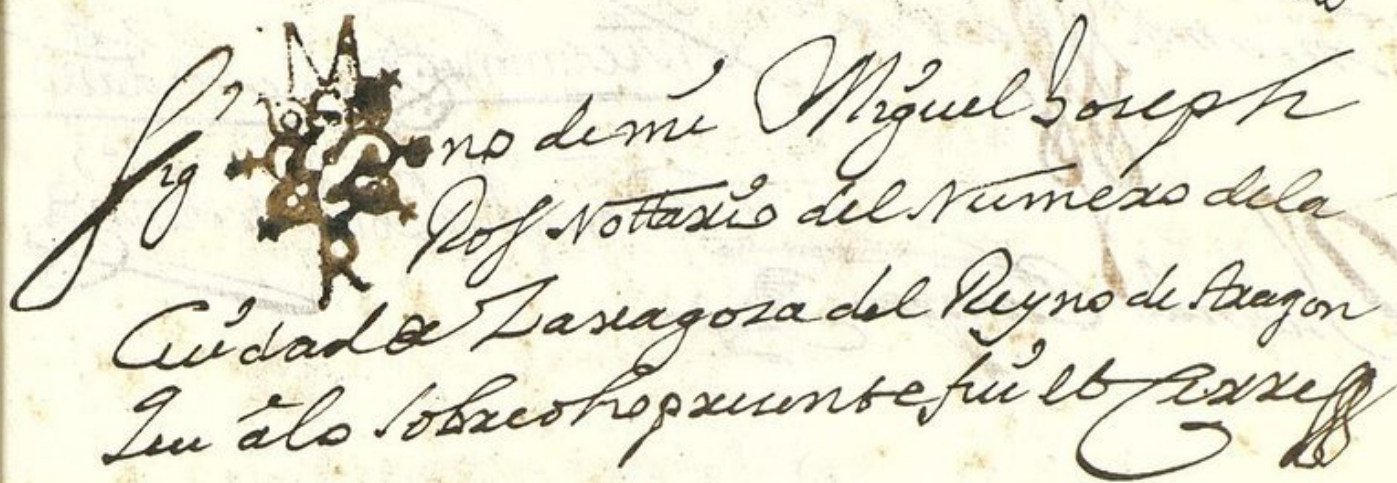 Sig no de mi Miguel Joseph
Rof Nottario del Numero dela
Ciudad de Zaragoza del Reyno de Aragon
Que à lo sobredho presente fui et Cerre